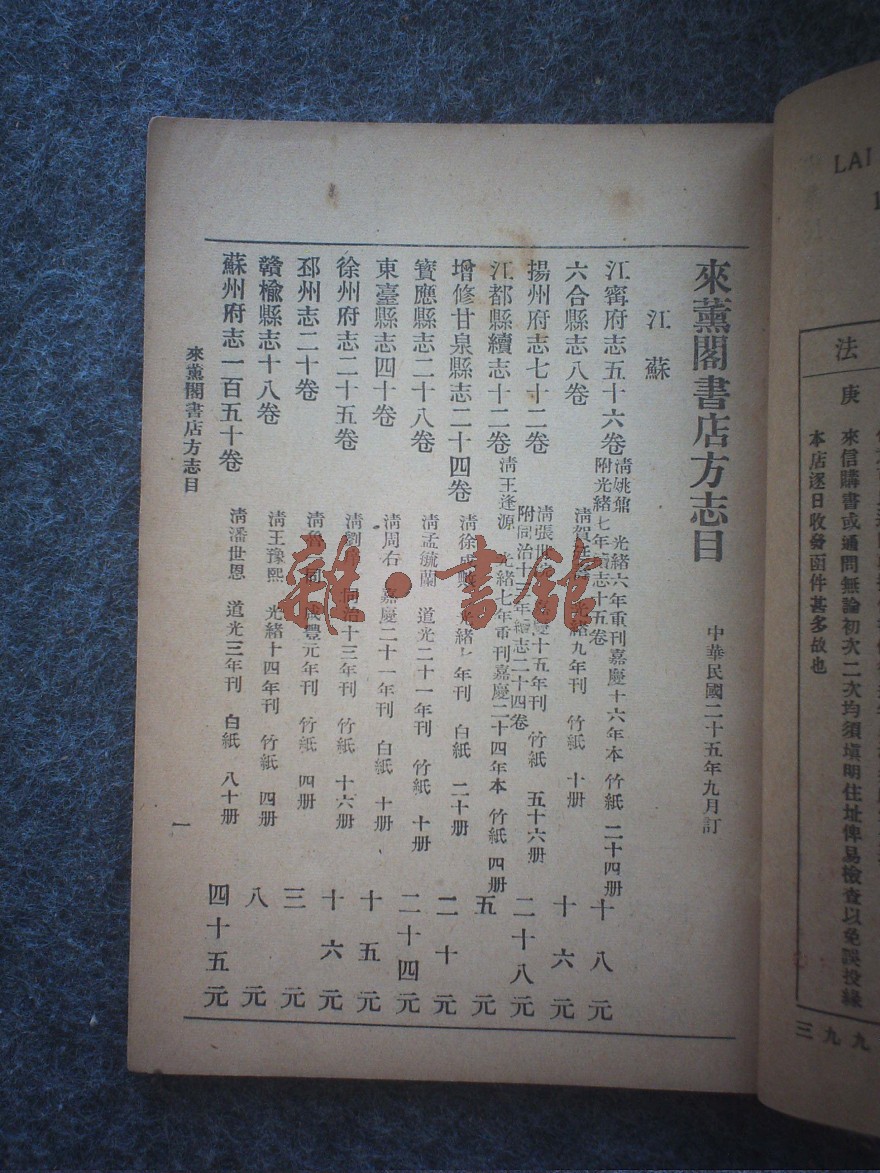 來薰閣書店方志目 中華民國二十五年九月訂
江蘇
江寗府志五十六卷 清姚鼐 光緒六年重刊嘉慶十六年本 竹紙 二十四册 十八元
附光緒七年 志十五卷
六合縣志八卷 清賀 光緒九年刊 竹紙 十册 十六元
揚州府志七十二卷 清張世 十五年刊 竹紙 五十六册 二十八元
附同治十三年 志二十四卷
江都縣續志十二卷 清王逢源 光緒七年重刊嘉慶二十四年本 竹紙 四册 五元
增修甘泉縣志二十四卷 清徐成 光緒七年刊 白紙 二十册 二十元
寳應縣志二十八卷 清孟毓蘭 道光二十一年刊 竹紙 十册 二十四元
東臺縣志四十卷 清周右 嘉慶二十一年刊 白紙 十册 十五元
徐州府志二十五卷 清劉 同治十三年刊 竹紙 十六册 十六元
邳州志二十卷 清魯一同 咸豐元年刊 竹紙 四册 三元
贛楡縣志十八卷 清王豫熙 光緒十四年刊 竹紙 四册 八元
蘇州府志一百五十卷 清潘世恩 道光三年刊 白紙 八十册 四十五元
來薰閣書店方志目 一
LAI
法
庚
來信購書或通問無論初次二次均須塡明住址俾易檢查以免誤投緣
本店逐日收發函件甚多故也
三九九
雜·書館